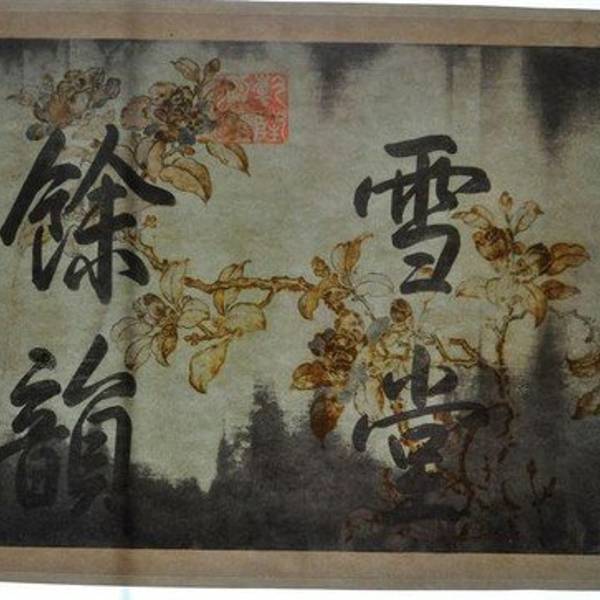 雪堂
餘韻